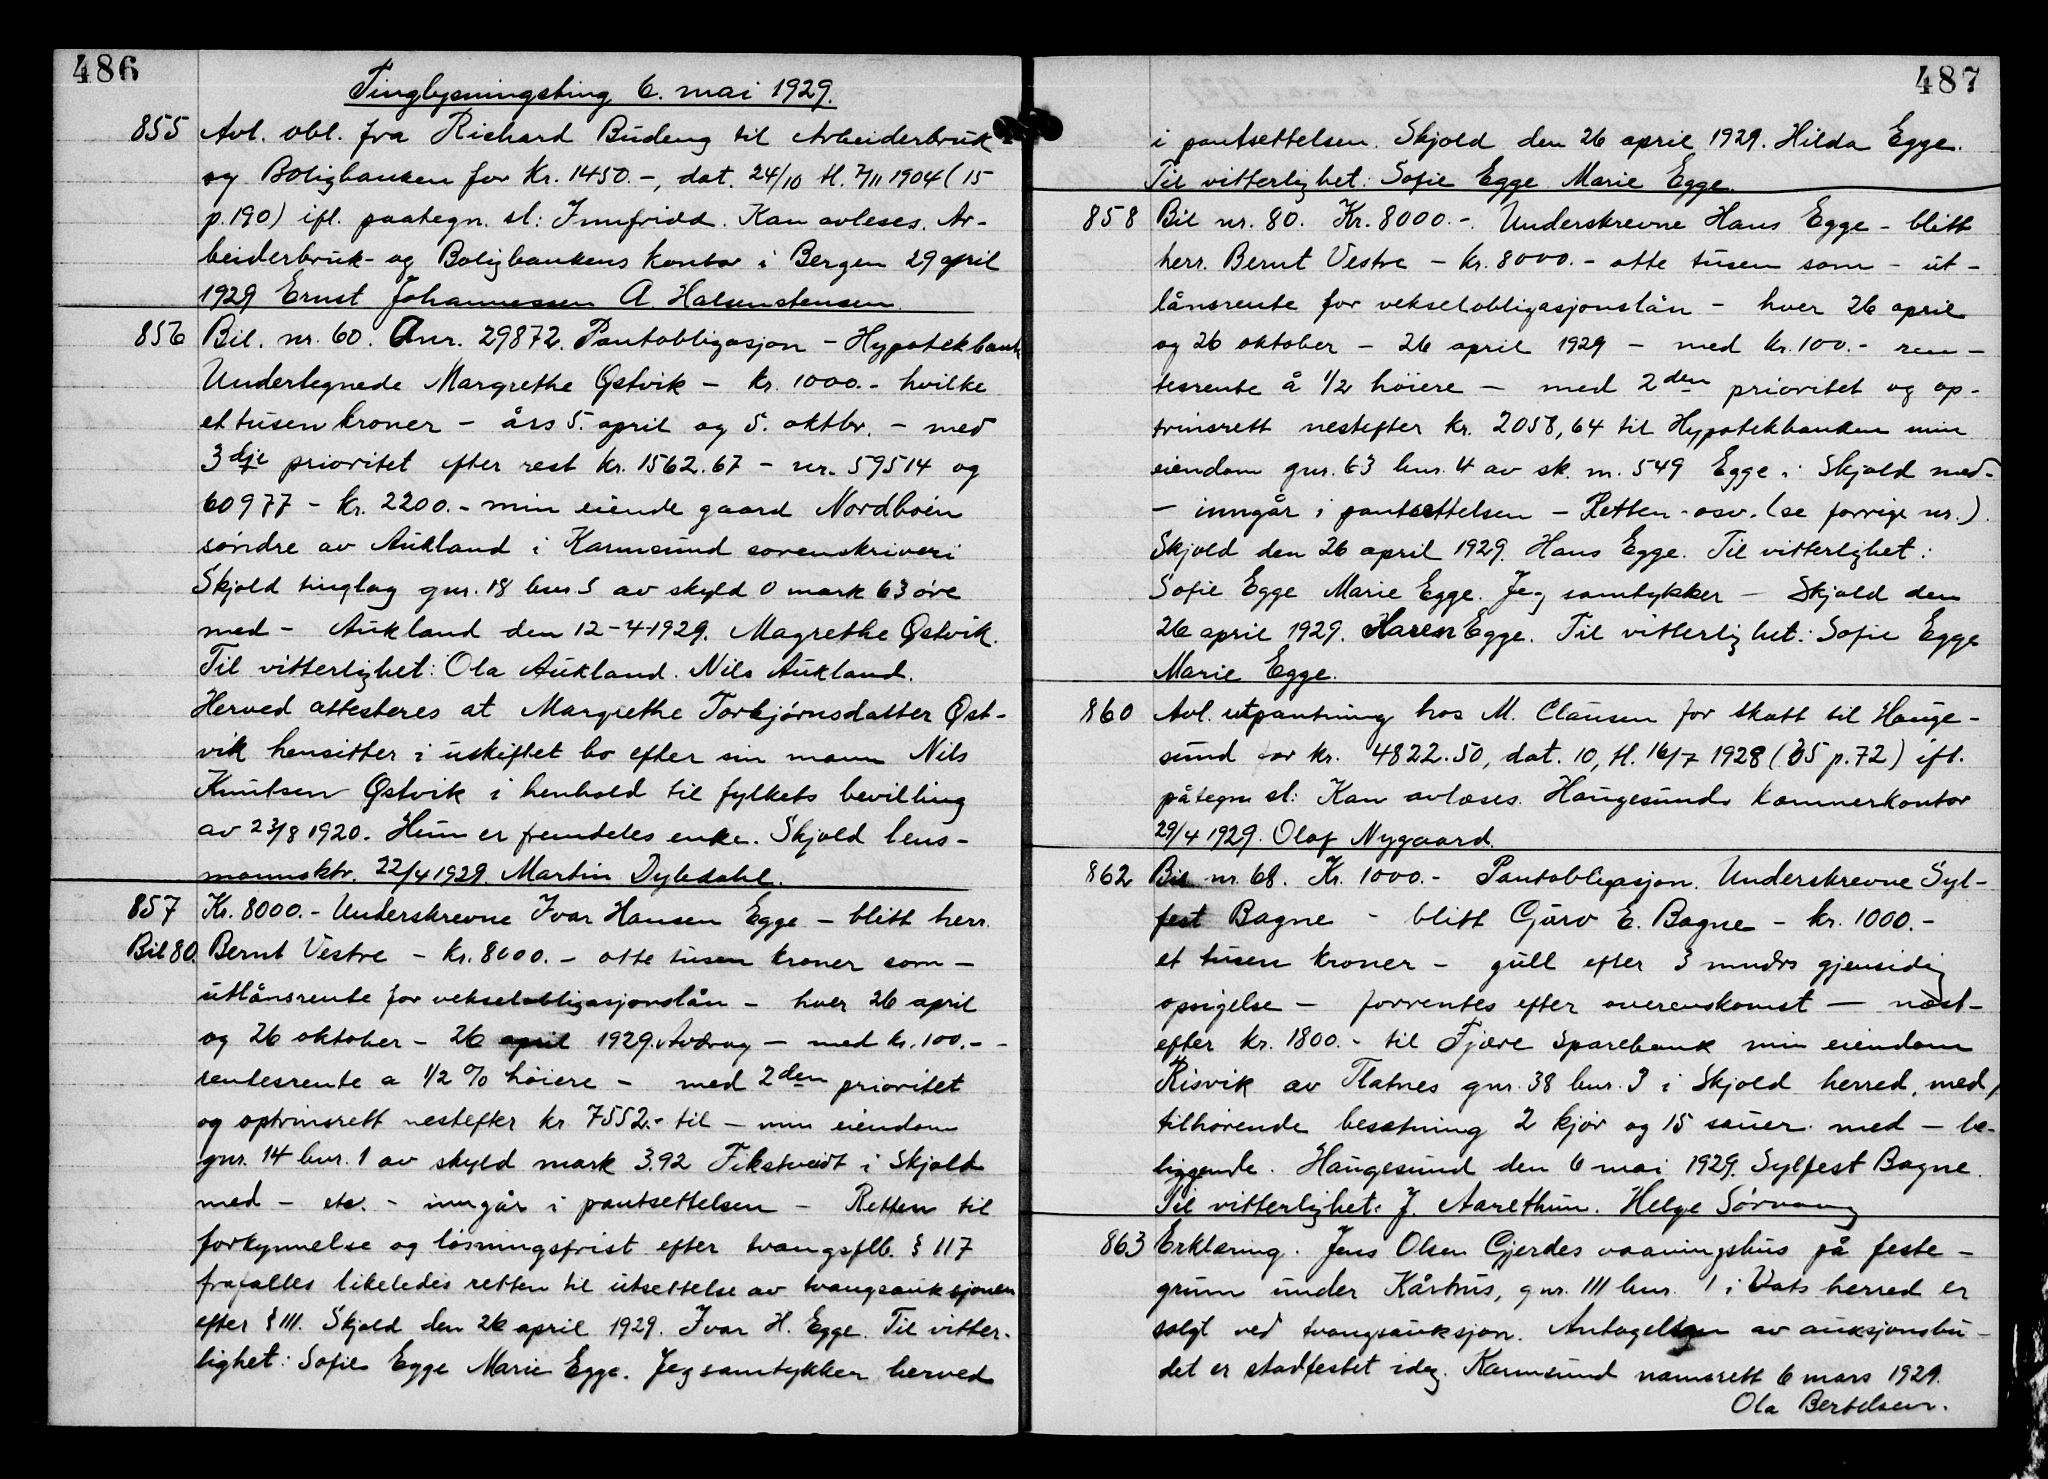 486
Tinglysningsting 6. mai 1929.
855 Avl. obl. fra Richard Budeng til Arbeiderbruk
og Boligbanken for Kr. 1450.-, dat. 24/10 tl. 7/11 1904 (15
p. 190) ifl. paategn. sl: Innfridd. Kan avleses. Ar-
beiderbruk- og Boligbankens kontor i Bergen 29 april
1929 Ernst Johannessen A.
856 Bil. nr. 60. Anr. 29872. Pantobligasjon - Hypotekbank
Undertegnede Margrethe Østvik - kr. 1000.- hvilke
et tusen kroner - års 5. april og 5. oktbr. - med
3dje prioritet efter rest kr. 1562.67 - nr. 59514 og
60977 - kr. 2200.- min eiende gaard Nordhoien
søndre av Aukland i Karmsund sorenskriveri
Skjold tinglag gnr. 18 bnr 5 av skyld 0 mark 63 øre
med - Aukland den 12-4-1929. Magrethe Østvik.
Til vitterlighet: Ola Aukland. Nils Aukland.
Herved attesteres at Margrethe Torbjørnsdatter Øst-
vik hensitter i uskiftet bo efter sin mann Nils
Knutsen Østvik i henhold til fylkets bevilling
av 23/8 1920. Hun er fremdeles enke. Skjold lens-
mannsktr. 22/4 1929. Martin Dybdahl.
857 Kr. 8000.- Underskrevne Ivar Hansen Egge - blitt herr.
Bil 80. Bernt Vestre - kr. 8000.- otte tusen kroner som -
utlånsrente for vekselobligasjonslån - hver 26 april
og 26 oktober - 26 april 1929. Avdrag - med kr. 100.- -
rentesrente a 1/2 % høiere - med 2den prioritet
og optrinsrett nestefter kr 7552.- til - min eiendom
gnr. 14 bnr. 1 av skyld mark 3.92 Fikstveidt i Skjold
med - etc. - inngår i pantsettelsen - Retten til
forkynnelse og løsningsfrist efter tvangsflb. § 117
frafalles likeledes retten til utsettelse av tvangsauksjonen
efter § 111. Skjold den 26 april 1929. Ivar H. Egge. Til vitter-
lighet: Sofie Egge Marie Egge. Jeg samtykker herved
487
i pantsettelsen. Skjold den 26 april 1929. Hilda Egge.
Til vitterlighet: Sofie Egge Marie Egge.
858 Bil nr. 80. Kr. 8000.-. Underskrevne Hans Egge - blitt
herr. Bernt Vestre - kr. 8000.- otte tusen som - ut-
lånsrente for vekselobligasjonslån - hver 26 april
og 26 oktober - 26 april 1929 - med kr. 100.- ren-
tesrente å 1/2 høiere - med 2den prioritet og op-
trinsrett nestefter kr. 2058,64 til Hypotekbanken min
eiendom gnr. 63 bnr. 4 av sk. m. 549 Egge i Skjold med-
- inngår i pantsettelsen - Retten - osv. (se forrige nr.)
Skjold den 26 april 1929. Hans Egge. Til vitterlighet:
Sofie Egge Marie Egge. Jeg samtykker - Skjold den
26 april 1929. Karen Egge. Til vitterlighet: Sofie Egge
Marie Egge.
860 Avl. utpantning hos M. Clausen for skatt til Hauge-
sund for kr. 4822.50, dat. 10, tl. 16/7 1928 (35 p. 72) ifl.
påtegn sl: Kan avlæses. Haugesunds kæmnerkontor
29/4 1929. Olaf Nygaard.
862 Bil nr. 68. Kr. 1000.- Pantobligasjon. Underskrevne Syl-
fest Bagne - blitt Guro E. Bagne - kr. 1000.-
et tusen kroner - gull efter 3 mndrs gjensidig
opsigelse - forrentes efter overenskomst - næst-
efter kr. 1800.- til Fjære Sparebank min eiendom
Risvik av Flatnes gnr. 38 bnr. 3 i Skjold herred, med
tilhørende besætning 2 kjør og 15 sauer. med - be-
liggende. Haugesund den 6 mai 1929. Sylfest Bagne.
Til vitterlighet: J. Aarethun. Helge Sørvang
863 Erklæring. Jens Olsen Gjerdes vaaningshus på feste-
grunn under Kårhus, gnr. 111 bnr. 1 i Vats herred er
solgt ved tvangsauksjon. Antagelsen av auksjonsbu-
det er stadfestet idag. Karmsund namsrett 6 mars 1929.
Ola Bertelsen.